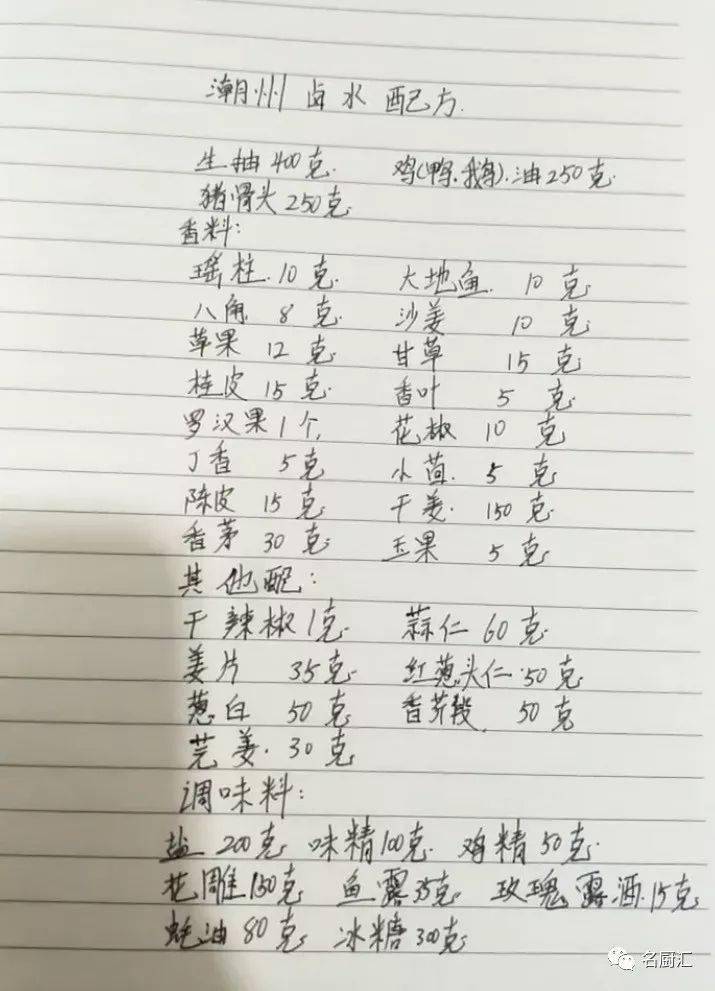 潮州卤水配方.
生抽400克. 鸡(鸭.鹅).油250克
猪骨头250克
香料:
瑶柱.10克. 大地鱼. 10克
八角 8克. 沙姜 10克
草果 12克 甘草 15克
桂皮 15克. 香叶 5克
罗汉果1个, 花椒 10克
丁香 5克 小茴. 5克
陈皮 15克 干姜. 150克
香茅 30克 玉果 5克
其他配:
干辣椒1克. 蒜仁60克
姜片 35克 红葱头仁.50克
葱白 50克 香芹段, 50克
芫荽.30克
调味料:
盐200克 味精100克. 鸡精50克.
花雕150克 鱼露35克 玫瑰露酒.15克
蚝油80克 冰糖300克
名厨汇